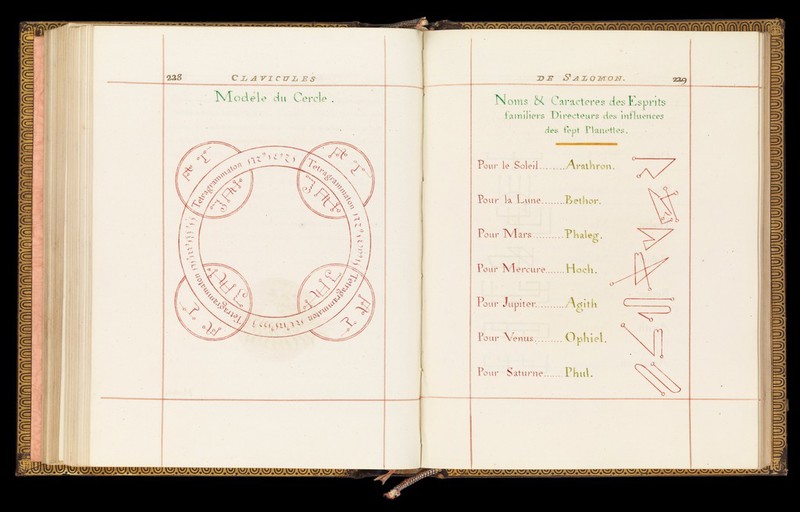 228
CLAVICULES
Modéle du Cercle.
Tetragrammaton
Tetragrammaton
Tetragrammaton
Tetragrammaton
DE SALOMON.
229
Noms & Caracteres des Esprits
familiers Directeurs des influences
des sept Planettes.
Pour le Soleil.........Arathron.
Pour la Lune........Bethor.
Pour Mars ..........Phaleg.
Pour Mercure......Hoch.
Pour Jupiter.........Agith
Pour Venus..........Ophiel.
Pour Saturne......Phul.